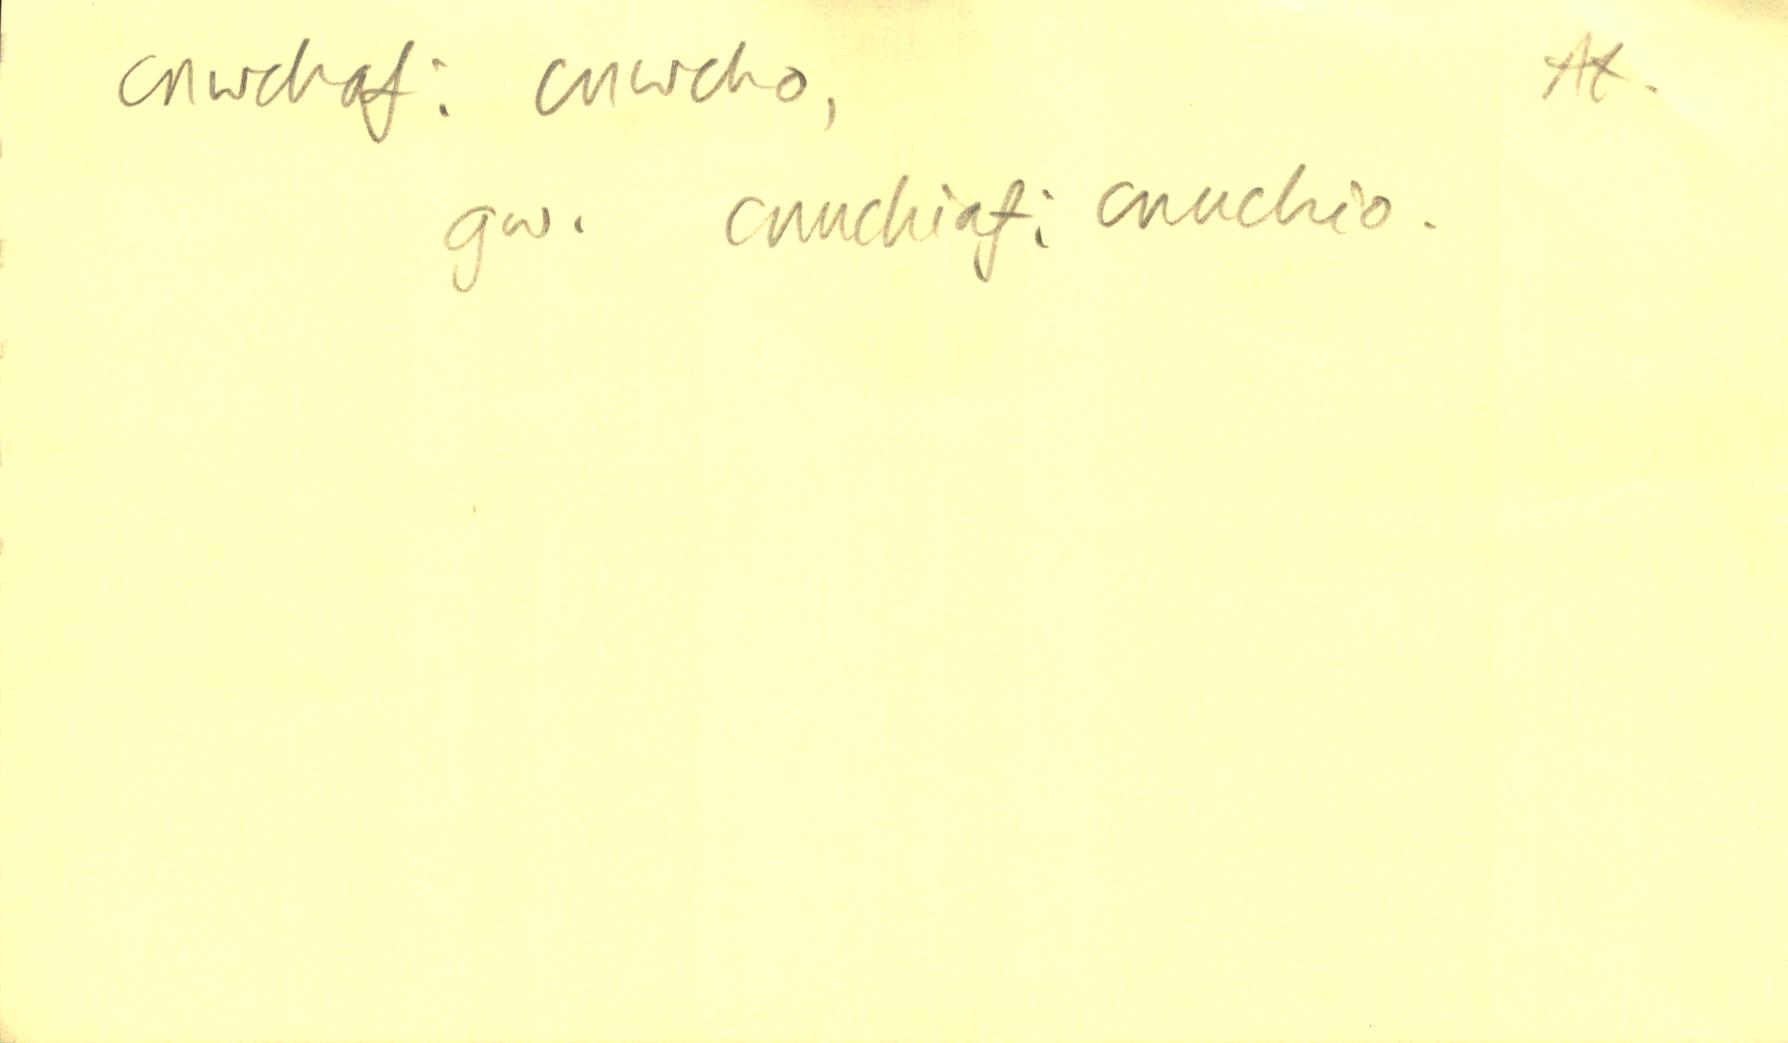 cnwchaf: cnwcho, At.
gw. cnuchiaf: cnuchio.